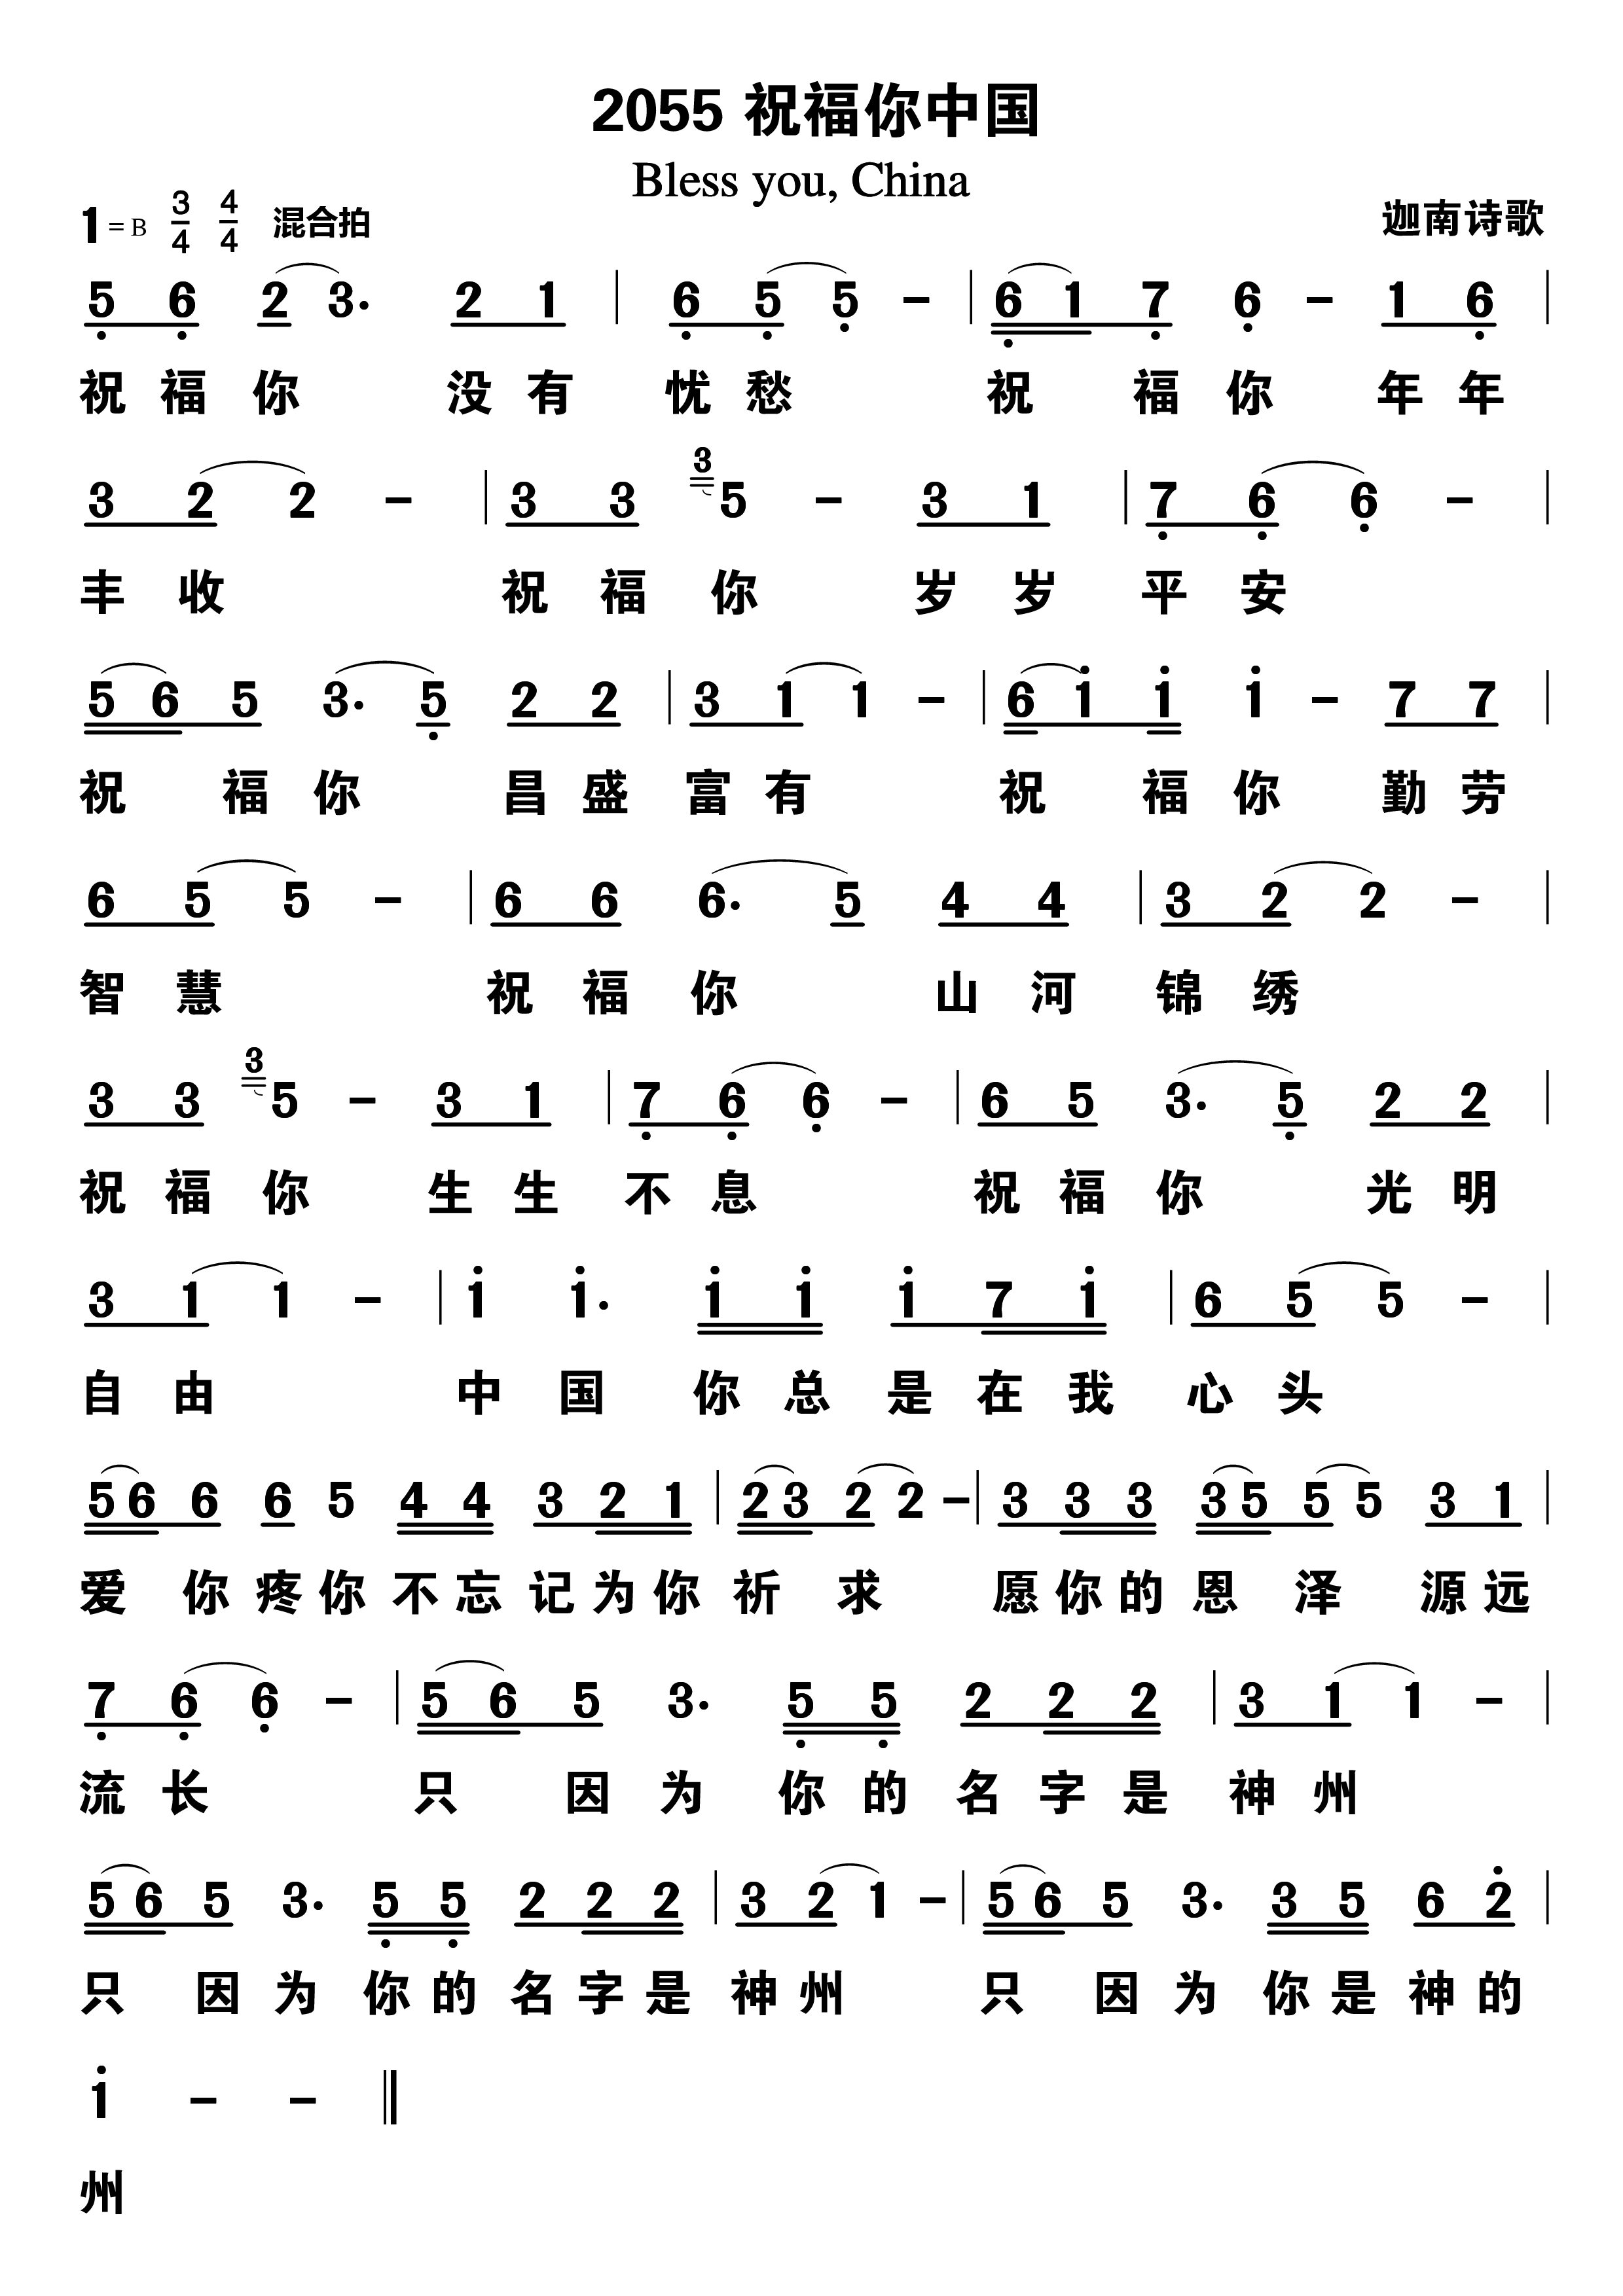 2055 祝福你中国
Bless you, China
1 = B 3/4 4/4 混合拍 迦南诗歌
5 6 2 3· 2 1 | 6 5 5 – | 6 1 7 6 – 1 6 |
祝 福 你 没 有 忧 愁 祝 福 你 年 年
3 2 2 – | 3 3 3 5 – 3 1 | 7 6 6 – |
丰 收 祝 福 你 岁 岁 平 安
5 6 5 3· 5 2 2 | 3 1 1 – | 6 1 1 1 – 7 7 |
祝 福 你 昌 盛 富 有 祝 福 你 勤 劳
6 5 5 – | 6 6 6· 5 4 4 | 3 2 2 – |
智 慧 祝 福 你 山 河 锦 绣
3 3 3 5 – 3 1 | 7 6 6 – | 6 5 3· 5 2 2 |
祝 福 你 生 生 不 息 祝 福 你 光 明
3 1 1 – | 1 1· 1 1 1 7 1 | 6 5 5 – |
自 由 中 国 你 总 是 在 我 心 头
5 6 6 6 5 4 4 3 2 1 | 2 3 2 2 – | 3 3 3 3 5 5 5 3 1 |
爱 你 疼 你 不 忘 记 为 你 祈 求 愿 你 的 恩 泽 源 远
7 6 6 – | 5 6 5 3· 5 5 2 2 2 | 3 1 1 – |
流 长 只 因 为 你 的 名 字 是 神 州
5 6 5 3· 5 5 2 2 2 | 3 2 1 – | 5 6 5 3· 3 5 6 2 |
只 因 为 你 的 名 字 是 神 州 只 因 为 你 是 神 的
1 – – ‖
州